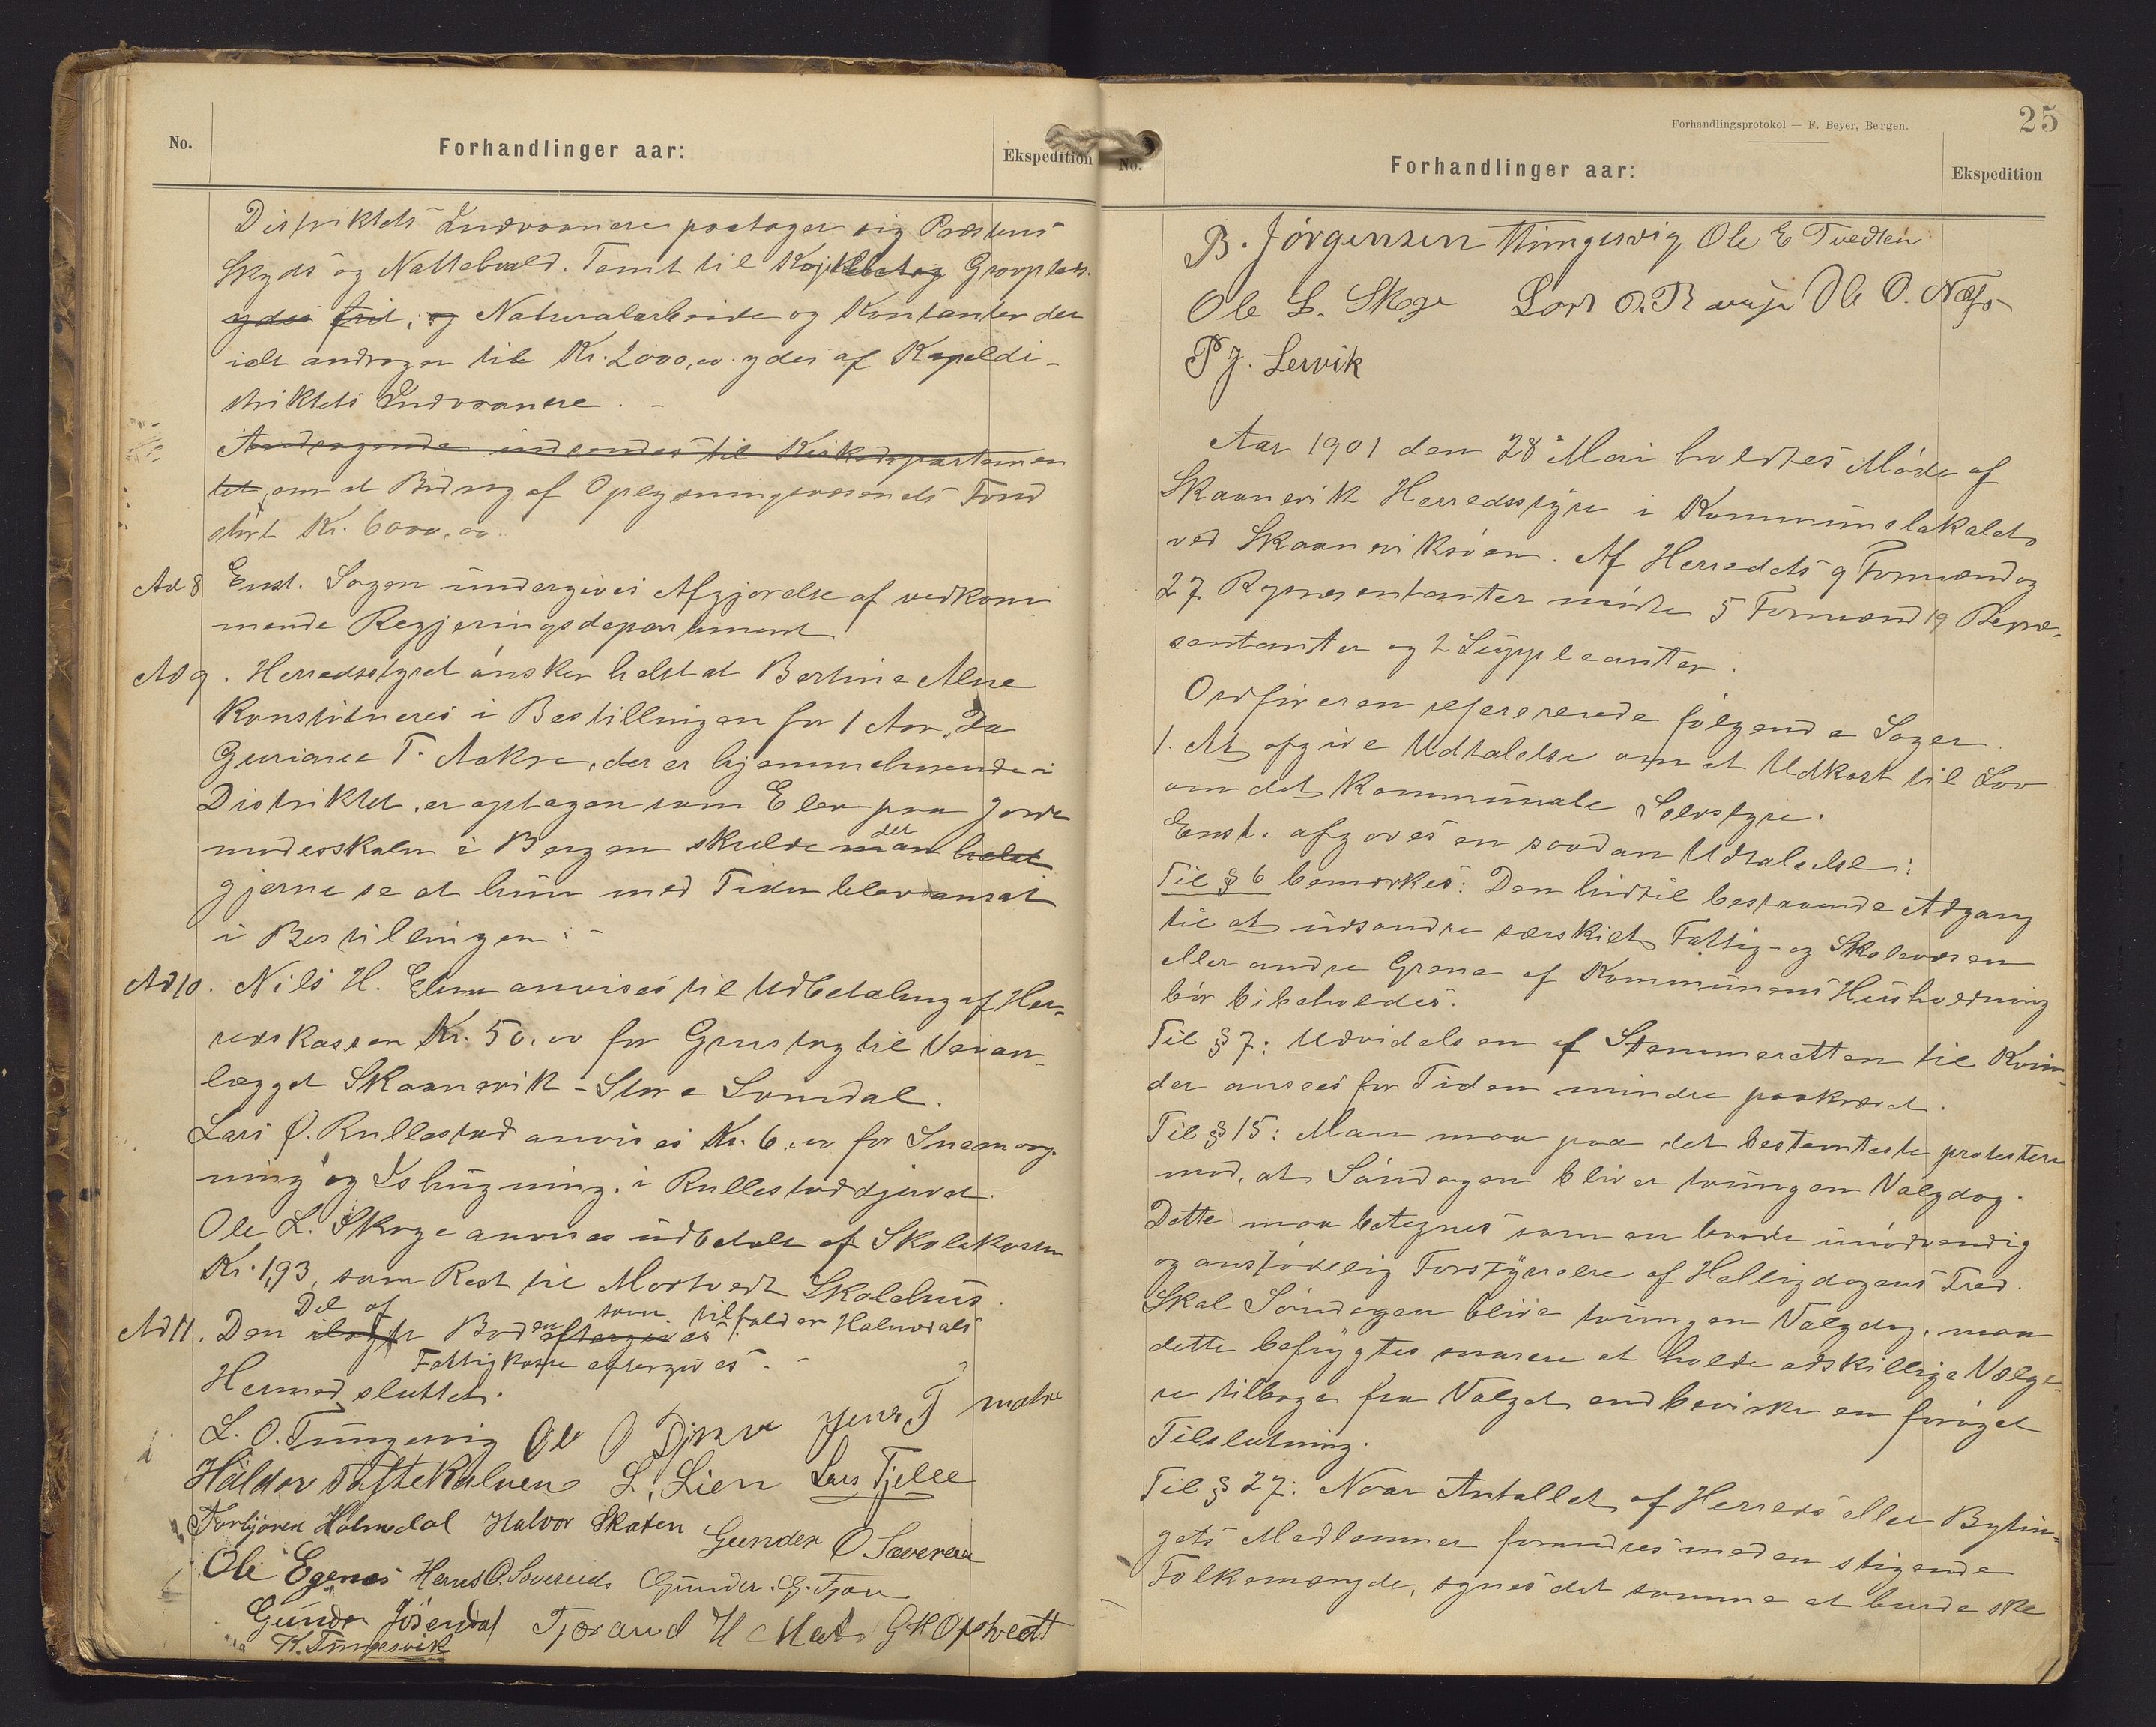 No.
Forhandlinger aar:
Ekspedition
Distriktets Indvaanere paatager sig Præstens
Skyds og Nattekvald. Tomt til Gravplads
ydes frit, og Naturalarbeide og Kontanter der
ialt andrager til Kr. 2000,00 ydes af Kapeldi-
striktets Indvaanere. -
Andragende indsendes til Kirkedepartemen
tet, om et Bidrag af Oplysningsvæsenets Fond
stort Kr. 6000,00.
Ad 8 Enst. Sagen undergives Afgjørelse af vedkom
mende Regjeringsdepartement
Ad 9. Herredsstyret ønsker helst at Bertine Alne
Konstitueres i Bestillingen for 1 Aar. Da
Guriane T. Aakre, der er hjemmehørende i
Distriktet, er optagen som Elev paa Jorde
moderskolen i Bergen skulde man helst
det
gjerne se at hun med Tiden blev ansat
i Bestillingen. -
Ad 10. Nils H. Elnes anvises til Udbetaling af Her-
redskassen Kr. 50,00 for Grustag til Veian-
lægget Skaanevik - Store Londal.
Lars O. Rullestad anvises Kr. 6,00 for Snemaag-
ning og Ishugning i Rullestadgjuvet.
Ole L. Skoge anvises udbetalt af Skolekassen
Kr. 1,93, som Rest til Mortvedt Skolehus.
Del af som tilfalder Holmedals
Ad 11. Den ilagte Boden eftergives.
Fattigkasse eftergives. -
Hermed sluttet.
L. O. Tungesvig Ole O Jens T Matre
Haldor Toftekalven L. Lien Lars Fjelle
Torbjøren Holmedal Halvor Skaten Gunder O Sævereid
Ole Egenes Herus O. Sævereide Gunder G. Tjøn
Gunder Jøsendal Tjeran d H Mat G H Opstvedt
K. Tungesvik
Forhandlingsprotokol — F. Beyer, Bergen.
25
No.
Forhandlinger aar:
Ekspedition
B. Jørgensen Thungesvig Ole E Tvedten
Ole L. Skoge Ole O. Næss
P J. Lervik
Aar 1901 den 28 Mai holdtes Møde af
Skaanevik Herredsstyre i Kommunelokalet
ved Skaaneviksøen. Af Herredets 9 Formænd og
27 Repræsentanter mødte 5 Formænd 19 Repræ-
sentanter og 2 Suppleanter.
Ordføreren refererede følgende Sager.
1. At afgive Udtalelse om et Udkast til Lov
om det Kommunale Selvstyre.
Enst. afgaves en saadan Udtalelse:
Til § 6 bemærkes: Den hidtil bestaaende Adgang
til at udsondre særskilt Fattig- og Skolevæsen
eller andre Grene af Kommunens Husholdning
bør bibeholdes.
Til § 7: Udvidelsen af Stemmeretten til Kvin-
der ansees for Tiden mindre paakrævet.
Til § 15: Man maa paa det bestemteste protestere
mod, at Søndagen bliver tvungen Valgdag.
Dette maa betegnes som en baade unødvendig
og anstødelig Forstyrrelse af Helligdagens Fred.
Skal Søndagen blive tvungen Valgdag, maa
dette befrygtes snarere at holde adskillige Vælge-
re tilbage fra Valget end bevirke en forøget
Tilslutning.
Til § 27: Naar Antallet af Herreds eller Bytin-
gets Medlemmer formedres med en stigende
Folkemængde, synes det samme at burde ske